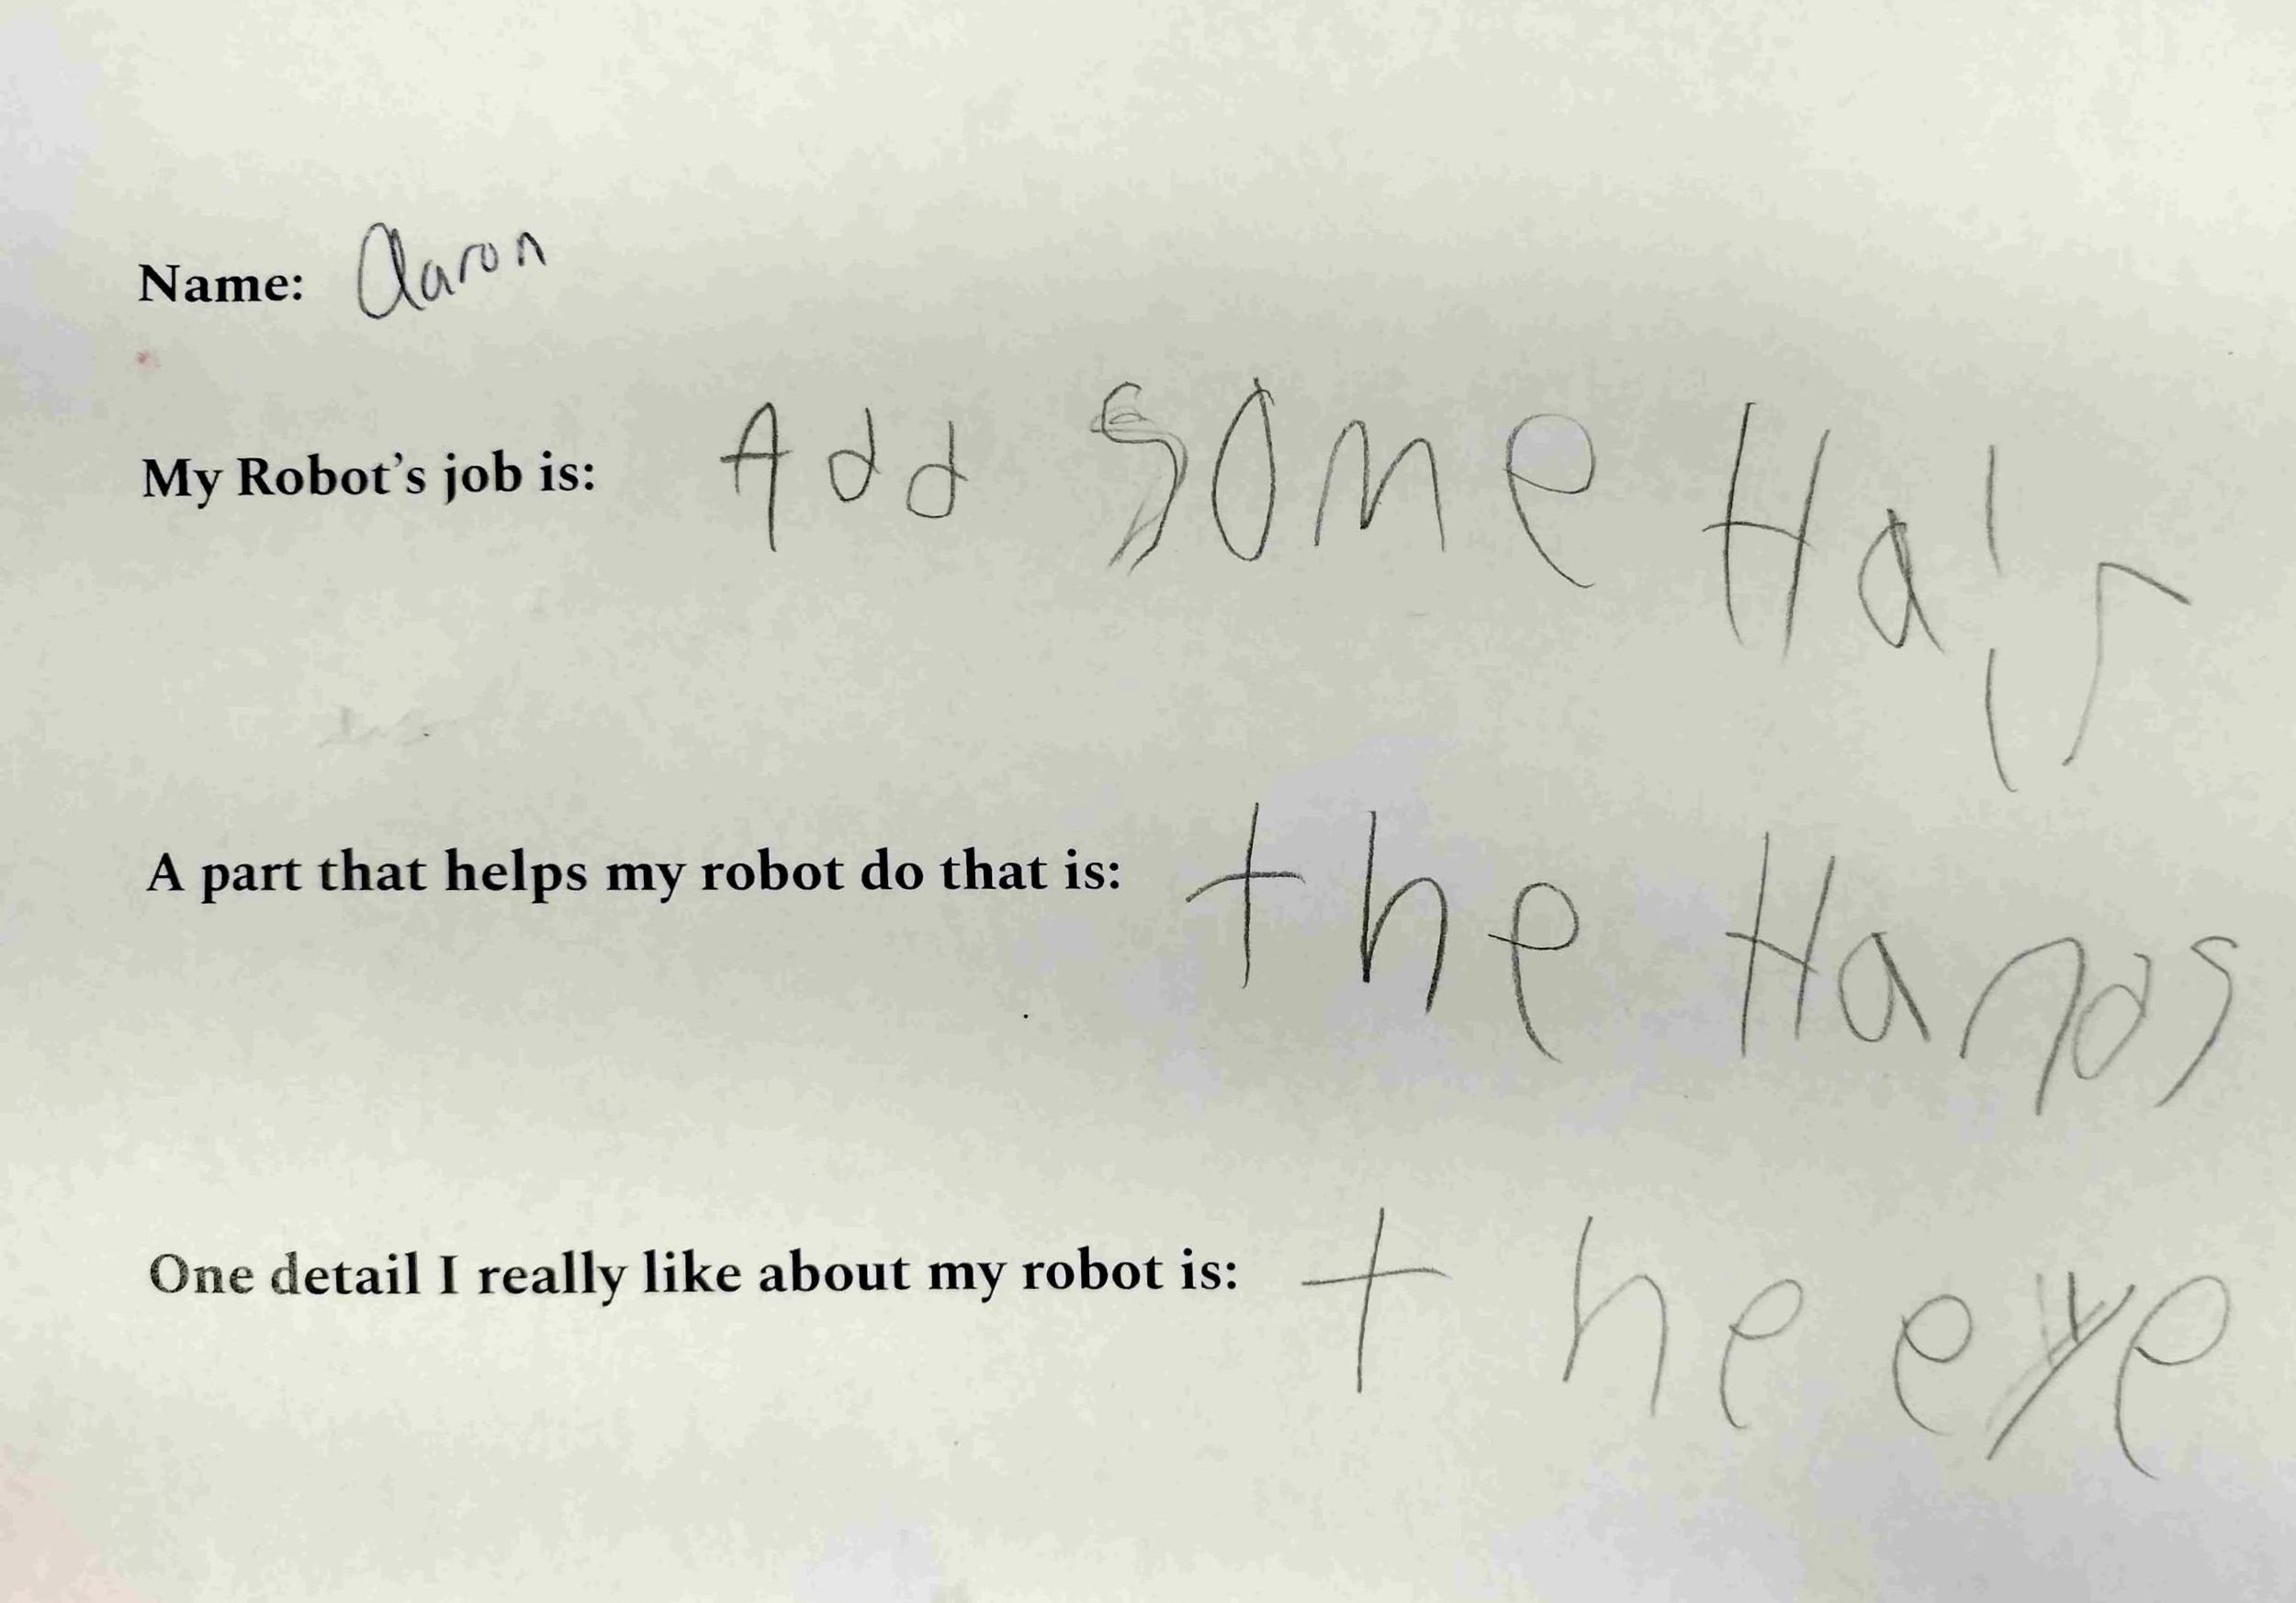 Name: Aaron
My Robot's job is: Add some Hair
A part that helps my robot do that is: the Hands
One detail I really like about my robot is: the eye